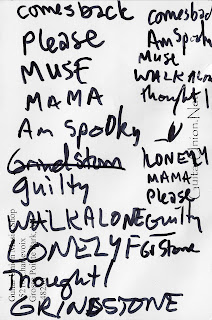 comesback
Please
MUSE
MAMA
Am spooky
Grindstone
guilty
WALKALONE
LONELY F
Thought
GRINDSTONE
comesback
Am Spooky
Muse
WALK ALON
thought
LONELY
MAMA
Please
Guilty
GrStone